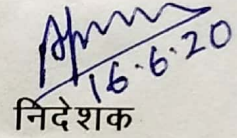 16.6.20
निदेशक